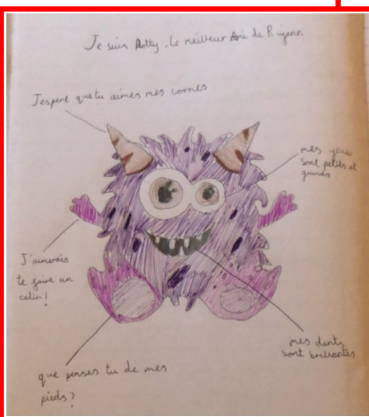 Je suis Dotty, le meilleur Ami de R
J'espère que tu aimes mes cornes
mes yeux
sont petits et
J'aimerais
te faire un
calin!
mes dents
sont brillantes
que penses tu de mes
pieds?